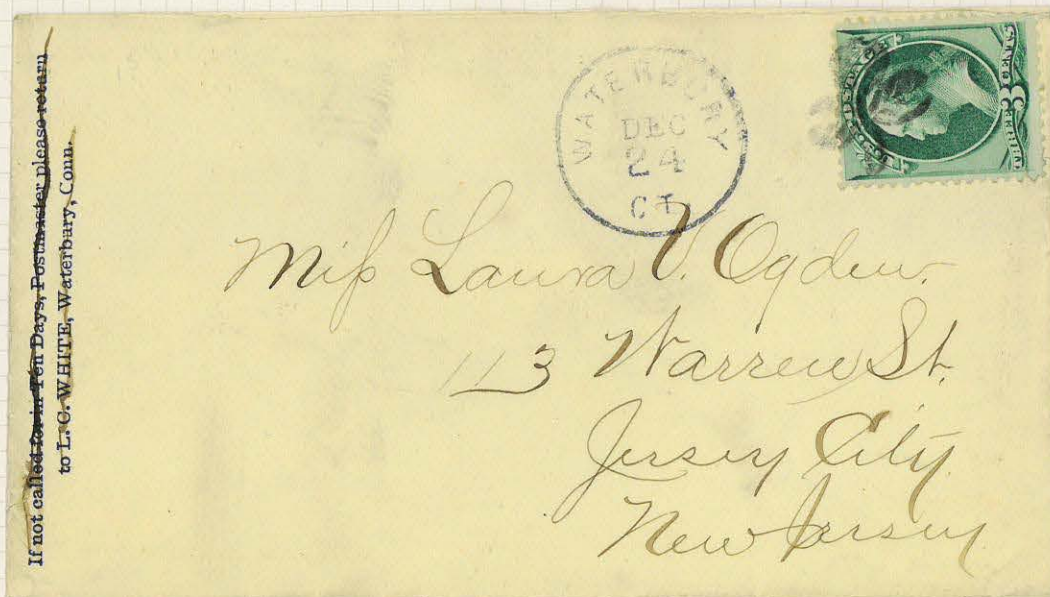 If not called for in Ten Days, Postmaster please return
to L. C. WHITE, Waterbury, Conn.
WATERBURY
DEC
24
CT.
Miſs Laura V. Ogden.
113 Warren St.
Jersey City
New Jersey